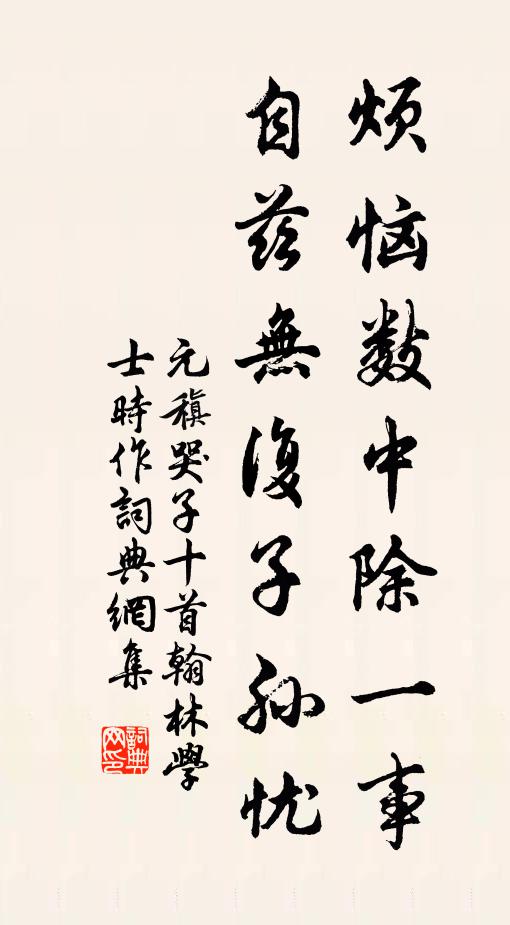 烦恼数中除一事
自茲無復子孫忧
元稹哭子十首翰林學
士時作詞典網集
詞典网印